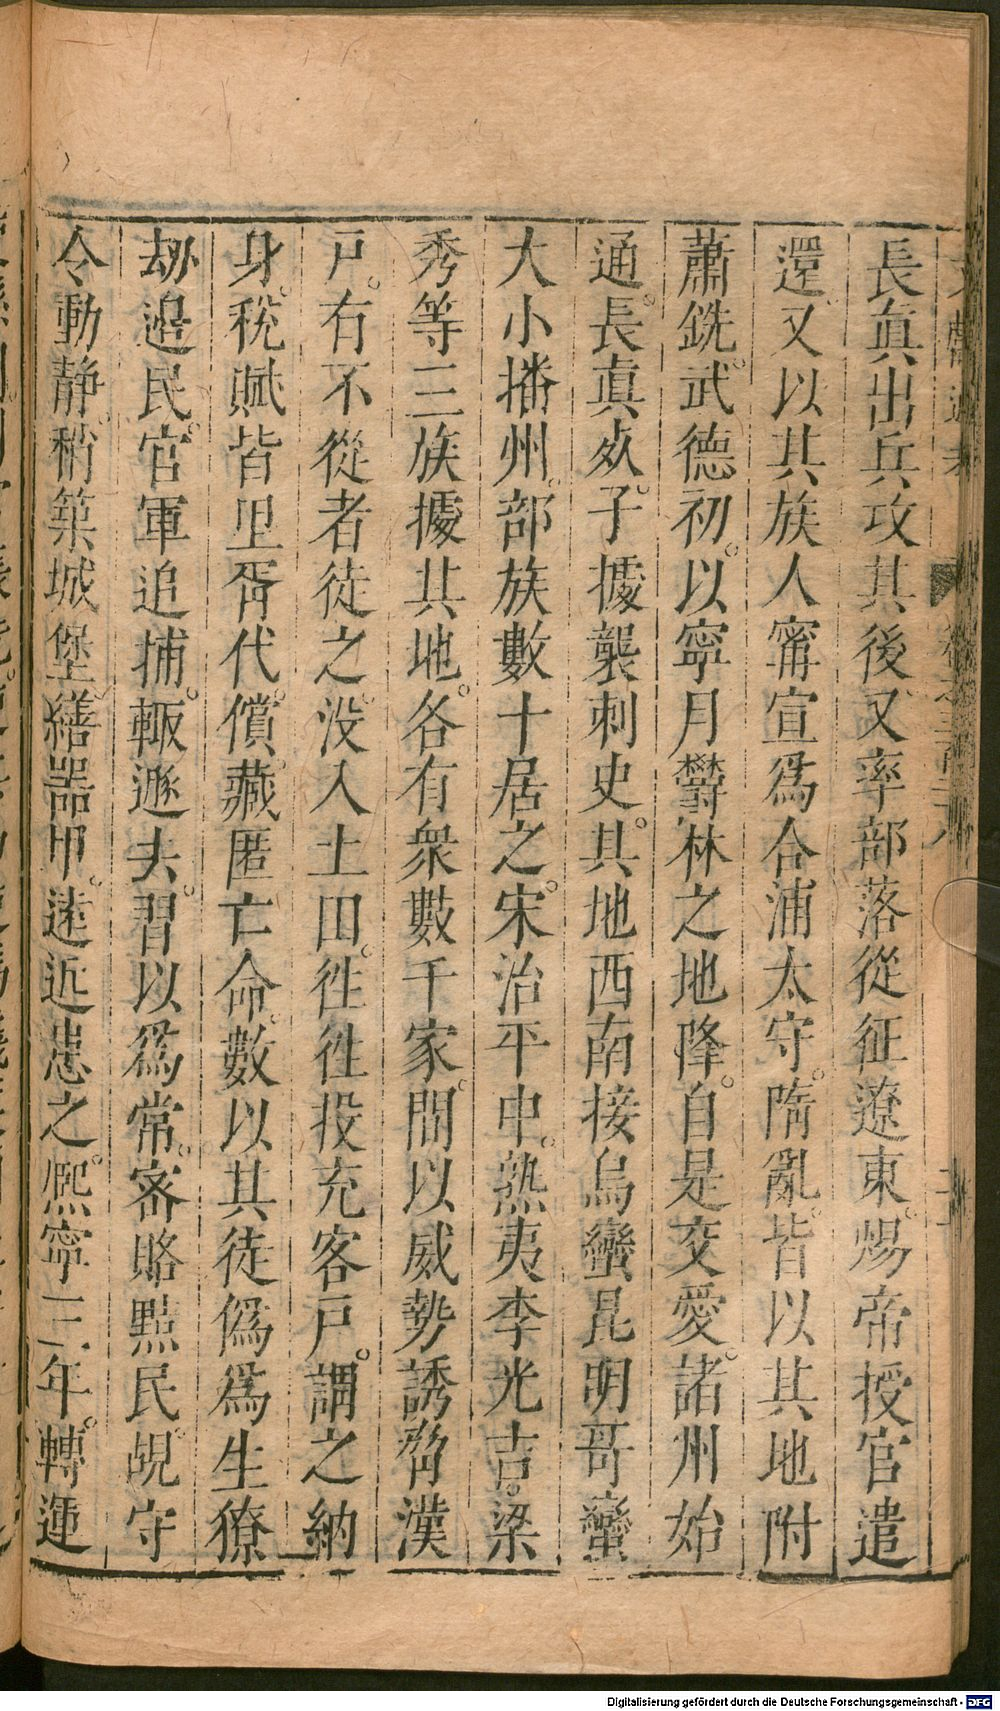 長眞出兵攻其後又率部落從征遼東煬帝授官遣
還又以其族人甯宣爲合浦太守隋亂皆以其地附
蕭銑武德初以寧月欝林之地降自是交愛諸州始
通長眞死子據襲刺史其地西南接烏蠻昆明哥蠻
大小播州部族數十居之宋治平中熟夷李光吉梁
秀等三族據其地各有衆數千家間以威勢誘脅漢
戸有不從者徙之没入土田徃徃投充客戸謂之納
身稅賦皆里胥代償藏匿亡命數以其徒僞爲生獠
劫邉民官軍追捕輙遯去習以爲常密賂黠民覘守
令動静稍築城堡繕器甲逺近患之熈寧三年轉運
Digitalisierung gefördert durch die Deutsche Forschungsgemeinschaft - DFG